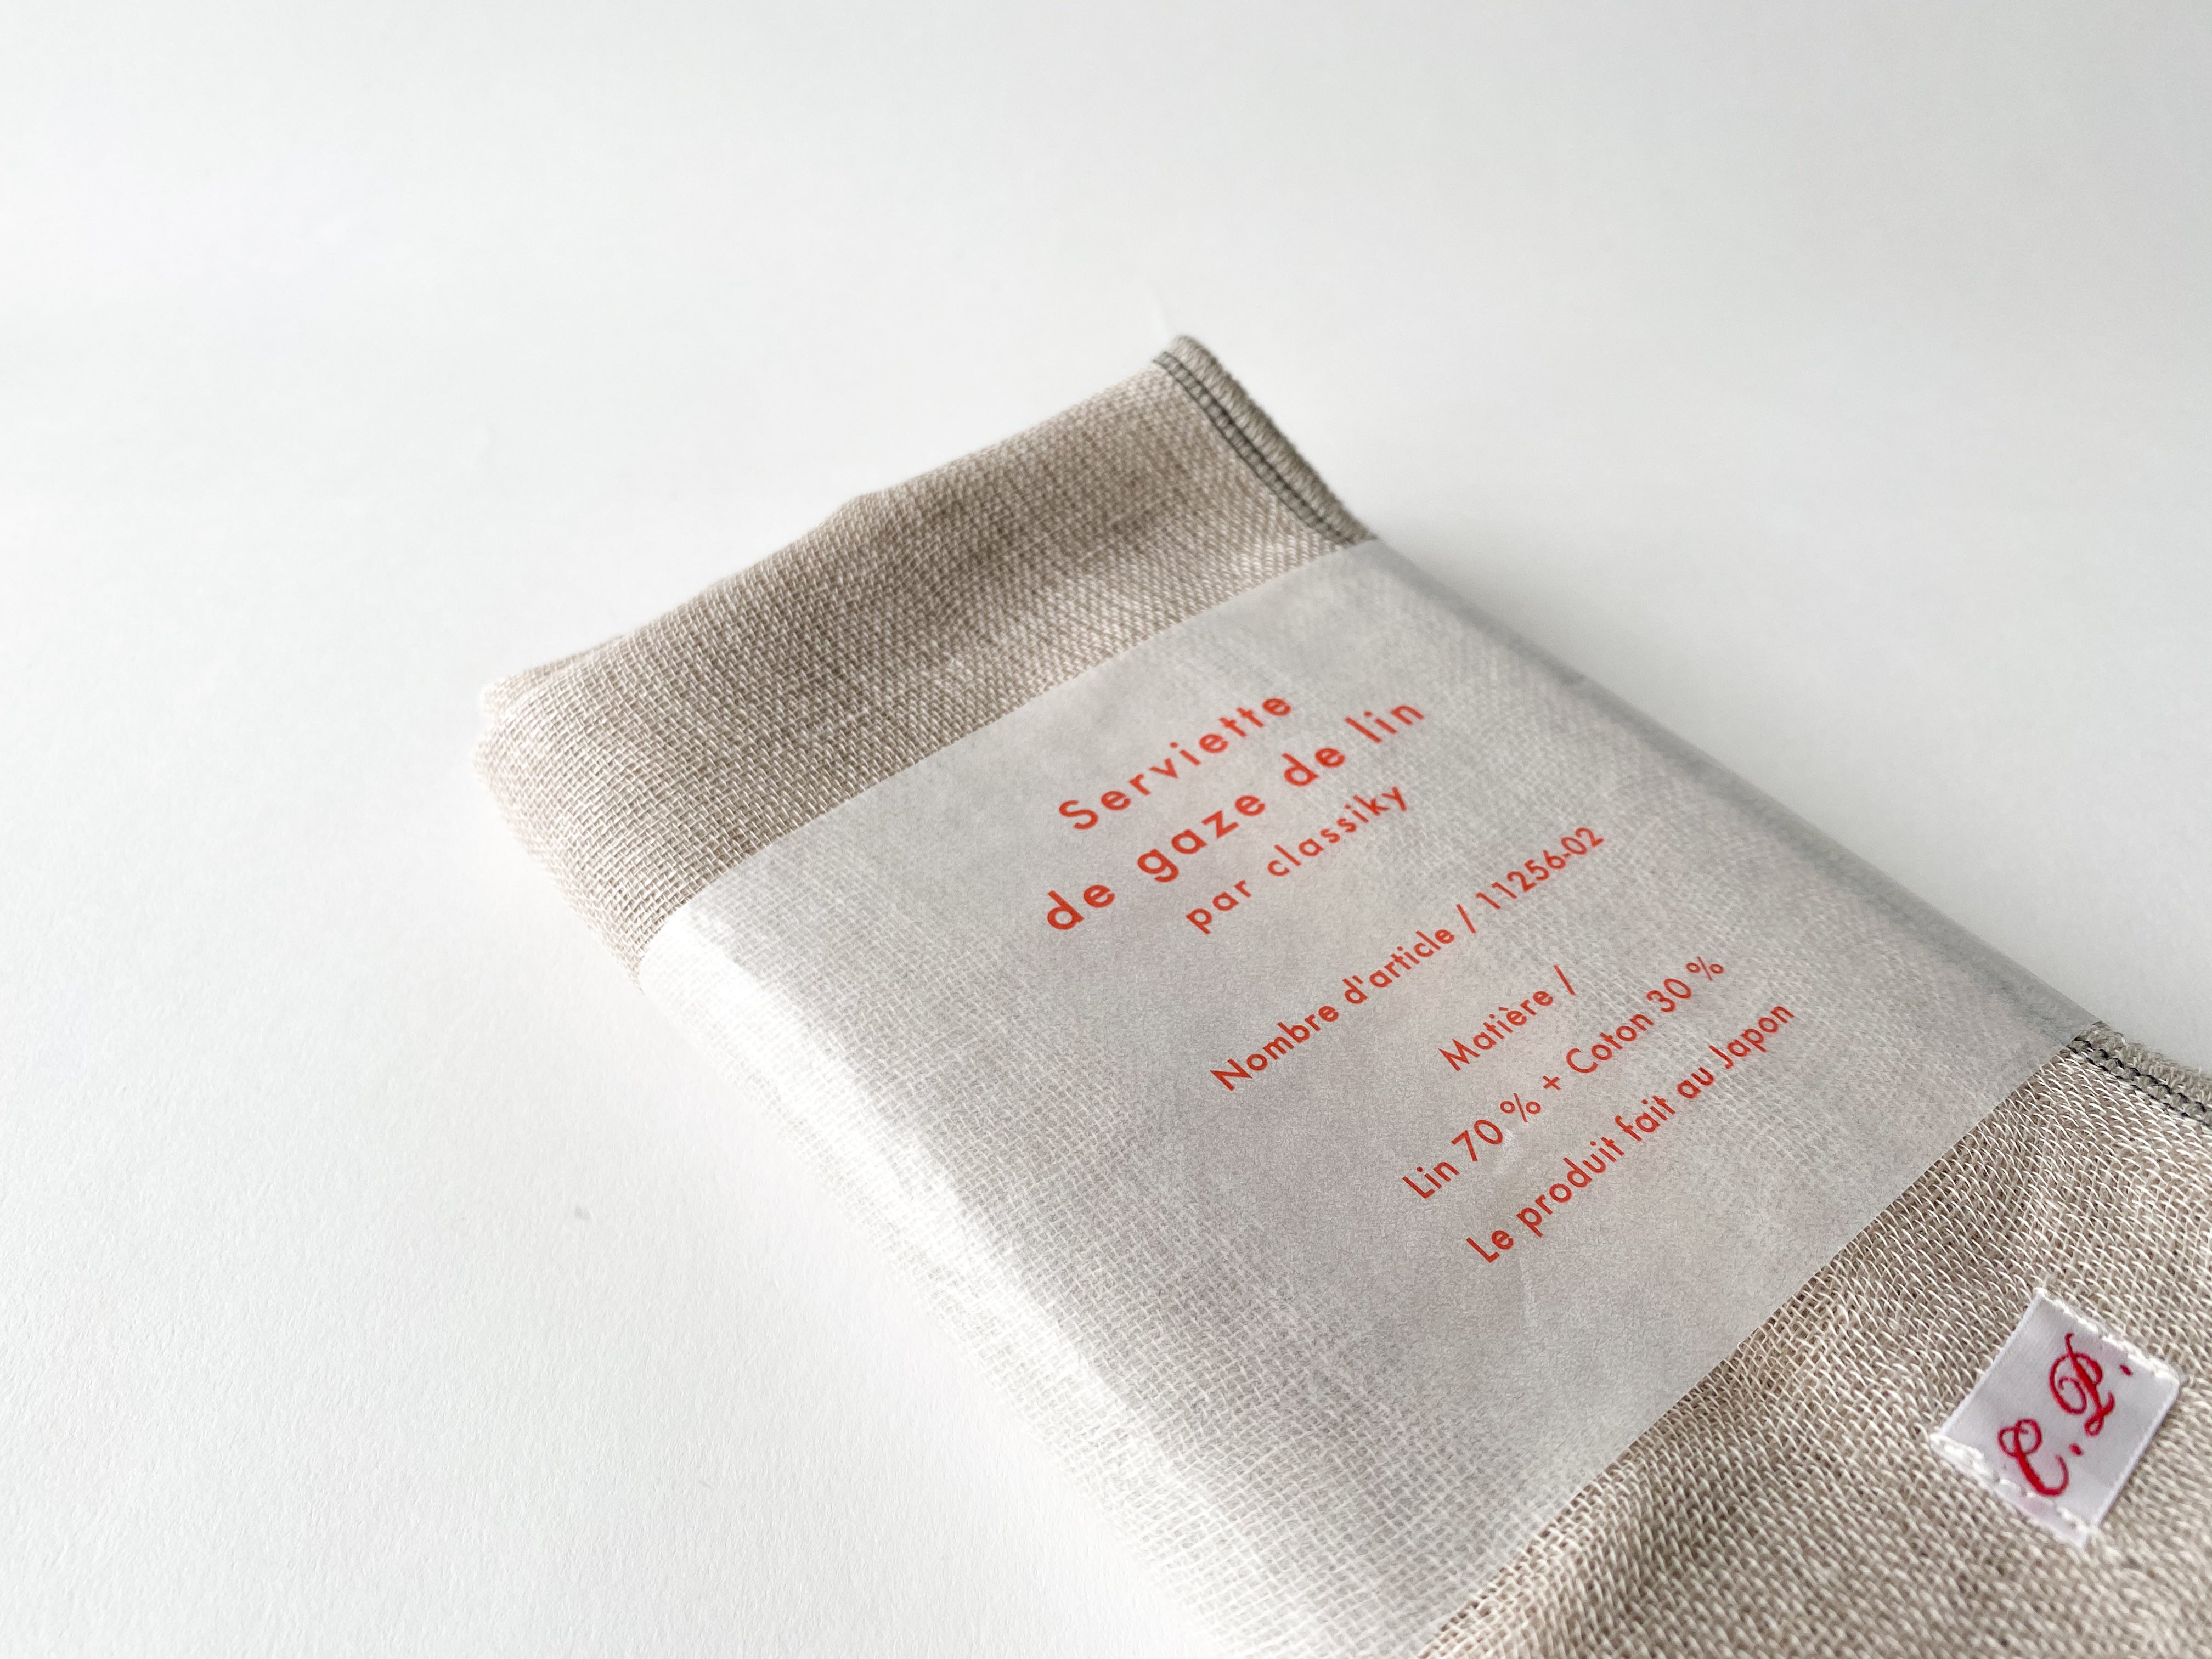 Serviette
de gaze de lin
par classiky
Nombre d'article / 11256-02
Matière /
Lin 70 % + Coton 30 %
Le produit fait au Japon
C.P.